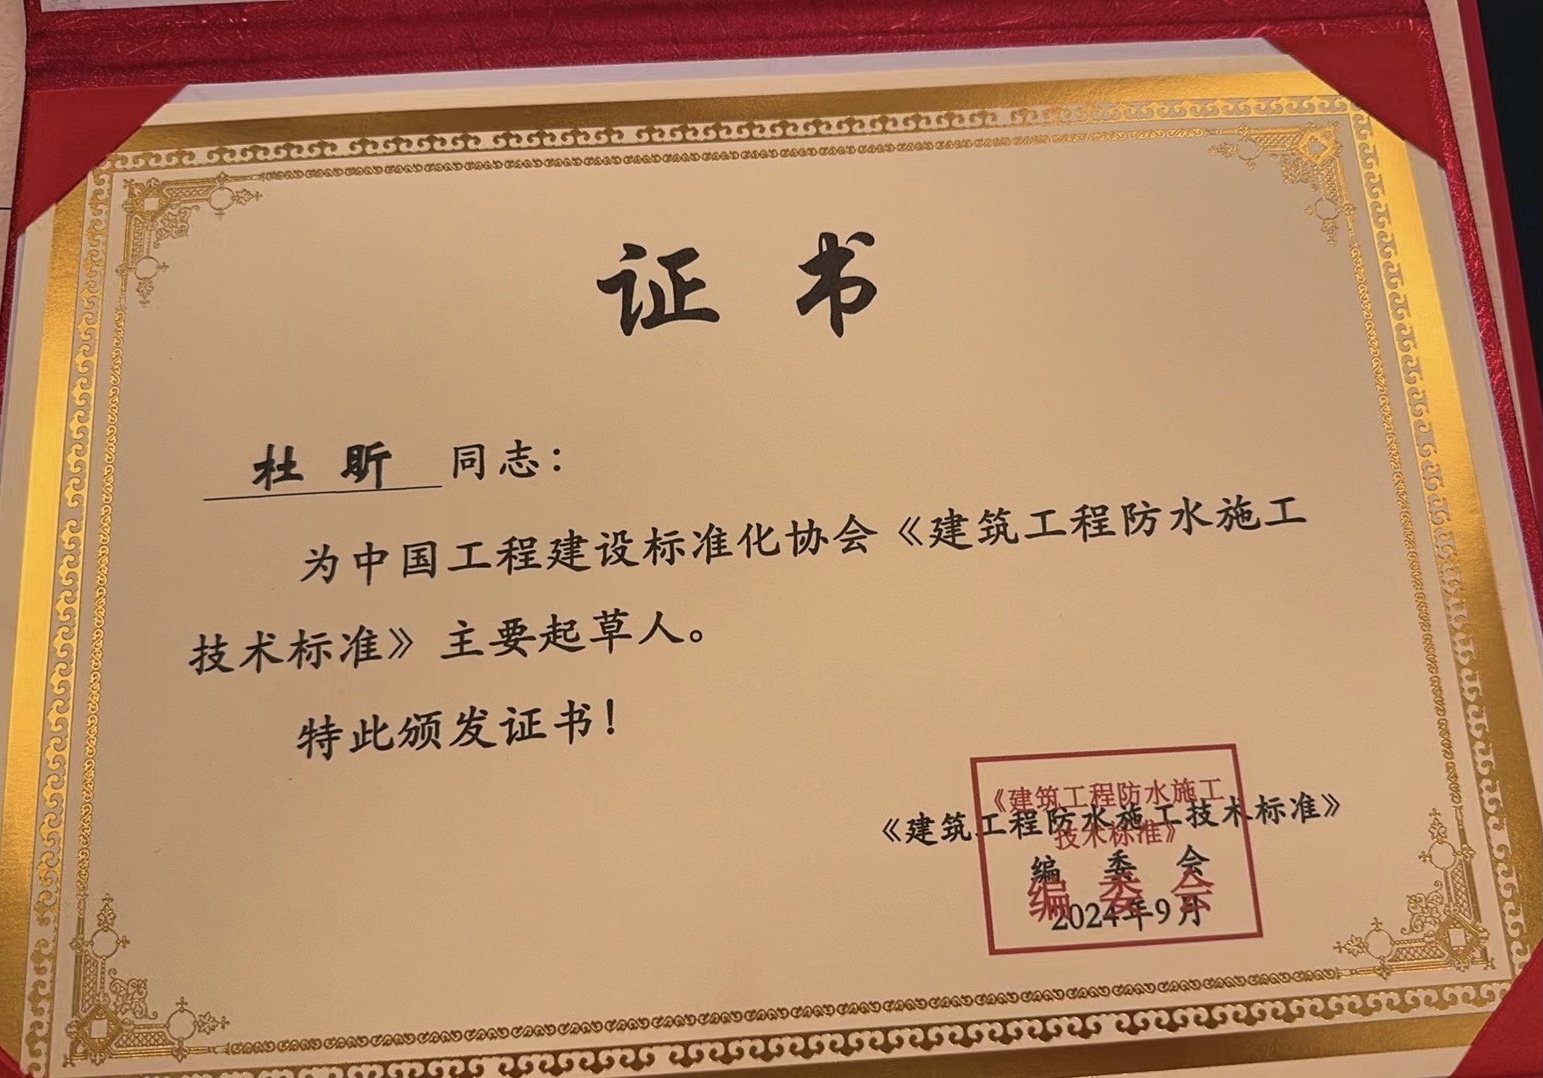 证 书
杜 昕 同志：
为中国工程建设标准化协会《建筑工程防水施工
技术标准》主要起草人。
特此颁发证书！
《建筑工程防水施工技术标准》
编 委 会
2024年9月
《建筑工程防水施工
技术标准》
编 委 会